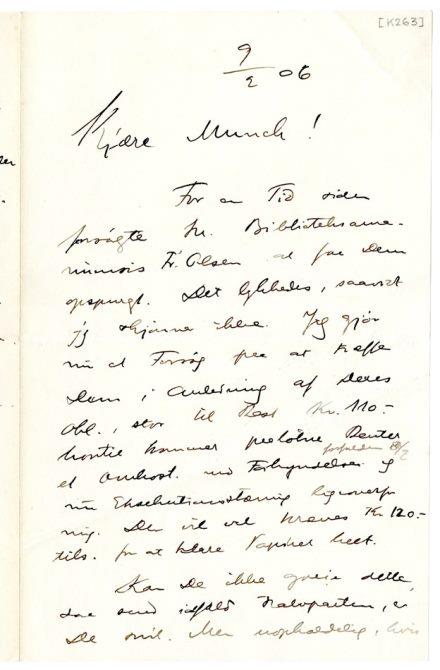 [K263]
9/2 06
Kjære Munch!
For en Tid siden
forsøgte Hr. Biblioteksama-
nuensis Fr. Olsen at faa Dem
opspurgt. Det lykkedes, saavidt
jeg skjønner ikke. Jeg gjør
nu et Forsøg paa at træffe
Dem i Anledning af Deres
Obl., stor til Rest Kr. 110.-
hvortil kommer paaløbne Renter
forfalden 8/2
et Omkost. ved Forkyndelser og
nu
Den vil vel kræves Kr 120.-
tils. for at klare Papiret helt.
Kan De ikke greie dette,
saa send ialfald Halvparten,
De snil. Men uopholdelig, hvis